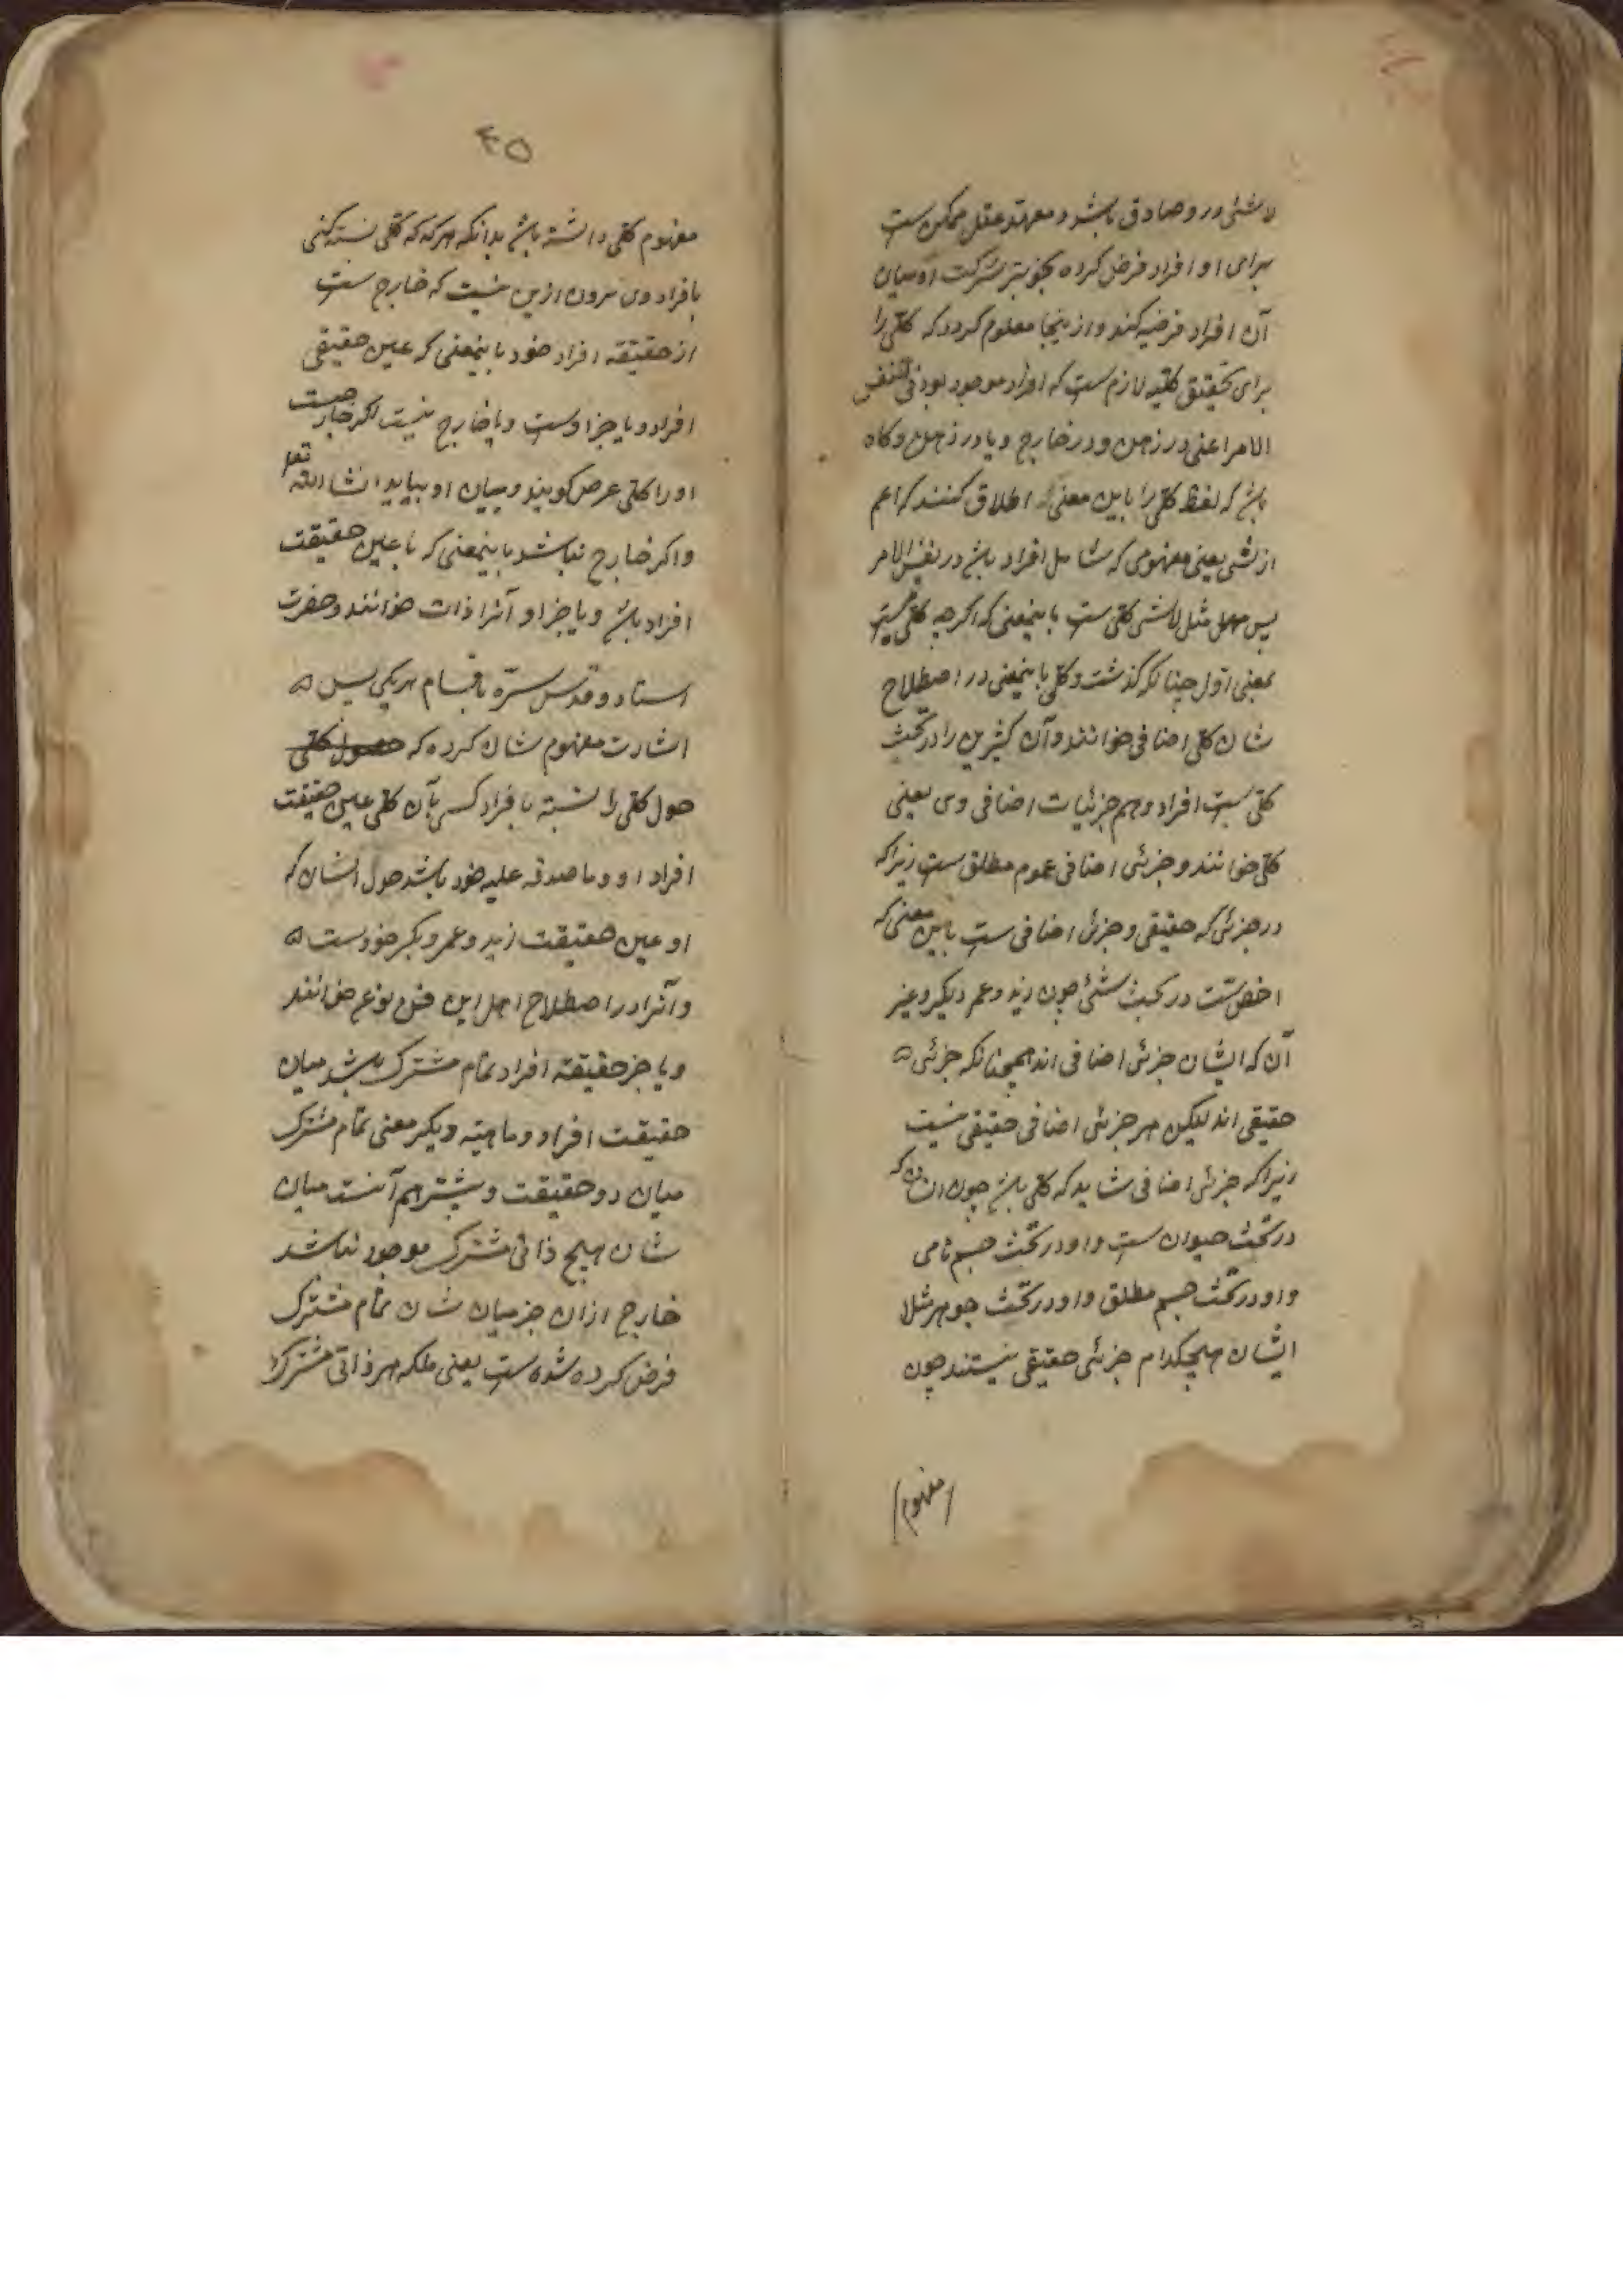 لاشئ در و صادق باشد و معهذا عقل ممکن ست
برای او افراد فرض کرده تجویز شرکت او میان
آن افراد فرضیه کند و از ینجا معلوم کردد که کلی را
برای تحقیق کلیه لازم ست که افراد موجود بود فی نفس
الامر اعنی در ذهن و در خارج و یا در ذهن و کاه
باشد که لفظ کلی را باین معنی اطلاق کنند که اعم
از شی یعنی مفهومی که شامل افراد باشد در نفس الامر
پس مثل لاشی کلی ست باینمعنی که اکرچه کلی نیست
بمعنی اول چنانکه کذشت و کلی باینمعنی در اصطلاح
شان کلی اضافی خوانند و آن کثیرین را در تحت
کلی ست افراد و هم جزئیات اضافی وی یعنی
کلی خوانند و جزئی اضافی عموم مطلق ست زیراکه
در جزئی که حقیقی و جزئی اضافی ست باین معنی که
اخص ست در تحت شئ چون زید و عمر و بکر و غیر
آن که ایشان جزئی اضافی اند همچنانکه جزئی
حقیقی اند لیکن هر جزئی اضافی حقیقی نیست
زیراکه جزئی اضافی شاید که کلی باشد چون انسان که
در تحت حیوان ست و او در تحت جسم نامی
و او در تحت جسم مطلق و او در تحت جوهر مثلا
ایشان هیچکدام جزئی حقیقی نیستند چون
مفهوم
۴۵
مفهوم کلی داشته باشد بدانکه هرکه که کلی نسبته کنی
بافراد وی بیرون ازین نیست که خارج ست
از حقیقة افراد خود باینمعنی که عین حقیقی
افراد و یا جزا و ست و یا خارج نیست اکر خارجست
او را کلی عرض کویند و بیان او بیاید انشا الله تعا
و اکر خارج نباشد باینمعنی که یا عین حقیقت
افراد باشد و یا جزا و آنرا ذات خوانند و حضرت
استاد و قدس سره باقسام هریکی پس
اشارت مفهوم شان کرده که حصول کلی
حول کلی را نسبته بافراد کس بآن کلی عین حقیقت
افراد او و ما صدق علیه خود باشد حول انسان که
او عین حقیقت زید و عمر و بکر خود ست
و آنرا در اصطلاح اهل این فن نوع خوانند
و یا جز حقیقة افراد تمام مشترک باشد میان
حقیقت افراد و ماهیته دیکر معنی تمام مشترک
میان دو حقیقت و بیشتر هم آنست میان
شان هیچ ذاتی مشترک موجود نباشد
خارج ازان جز میان شان تمام مشترک
فرض کرده شده ست یعنی ملکه هر ذاتی مشترک